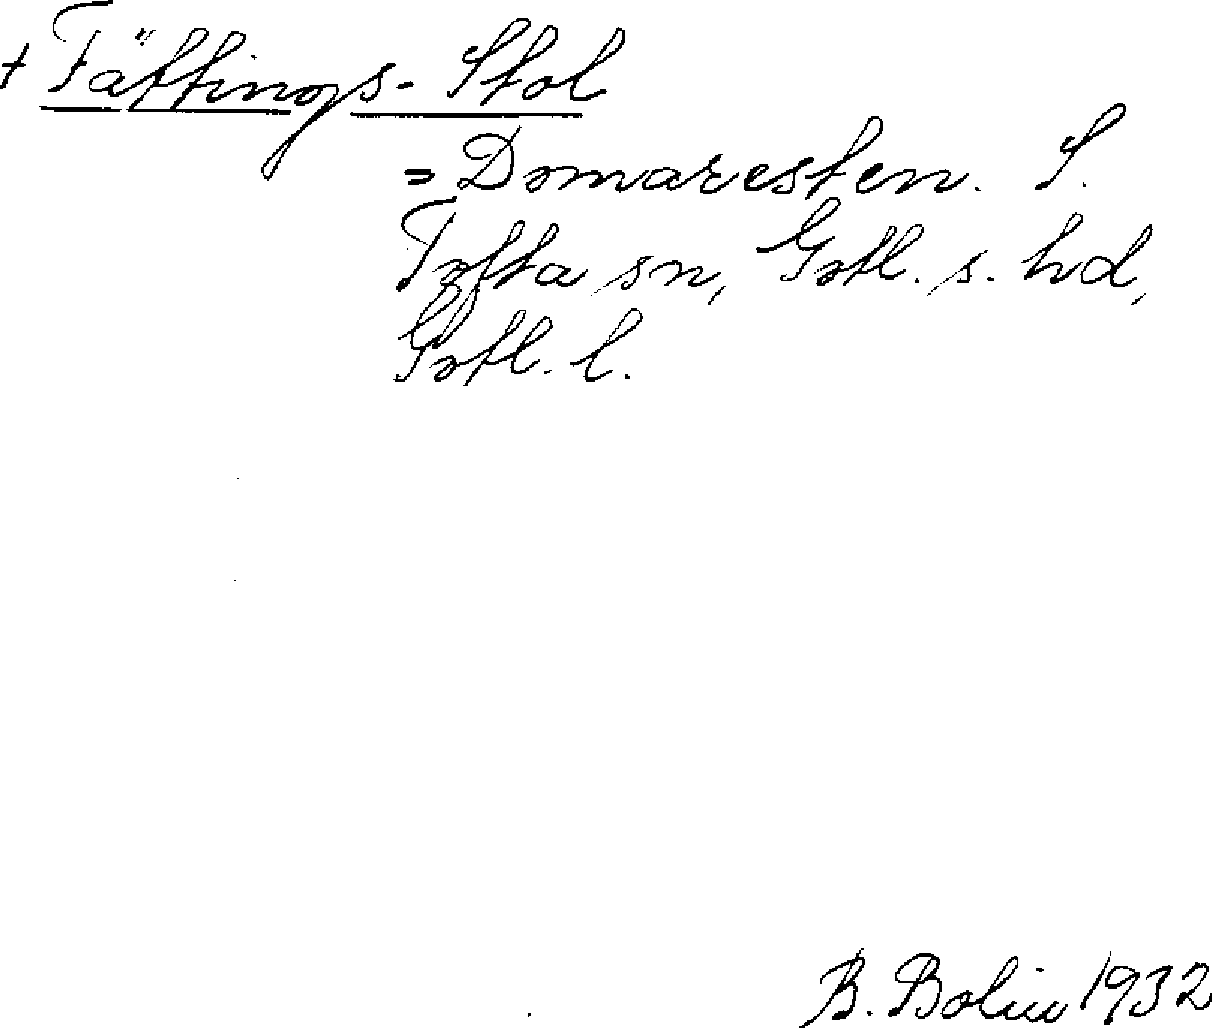 + Tättings-Stol
= Domaresten. S.
Tofta sn, Gotl. s. hd,
Gotl. l.
B. Bolin 1932